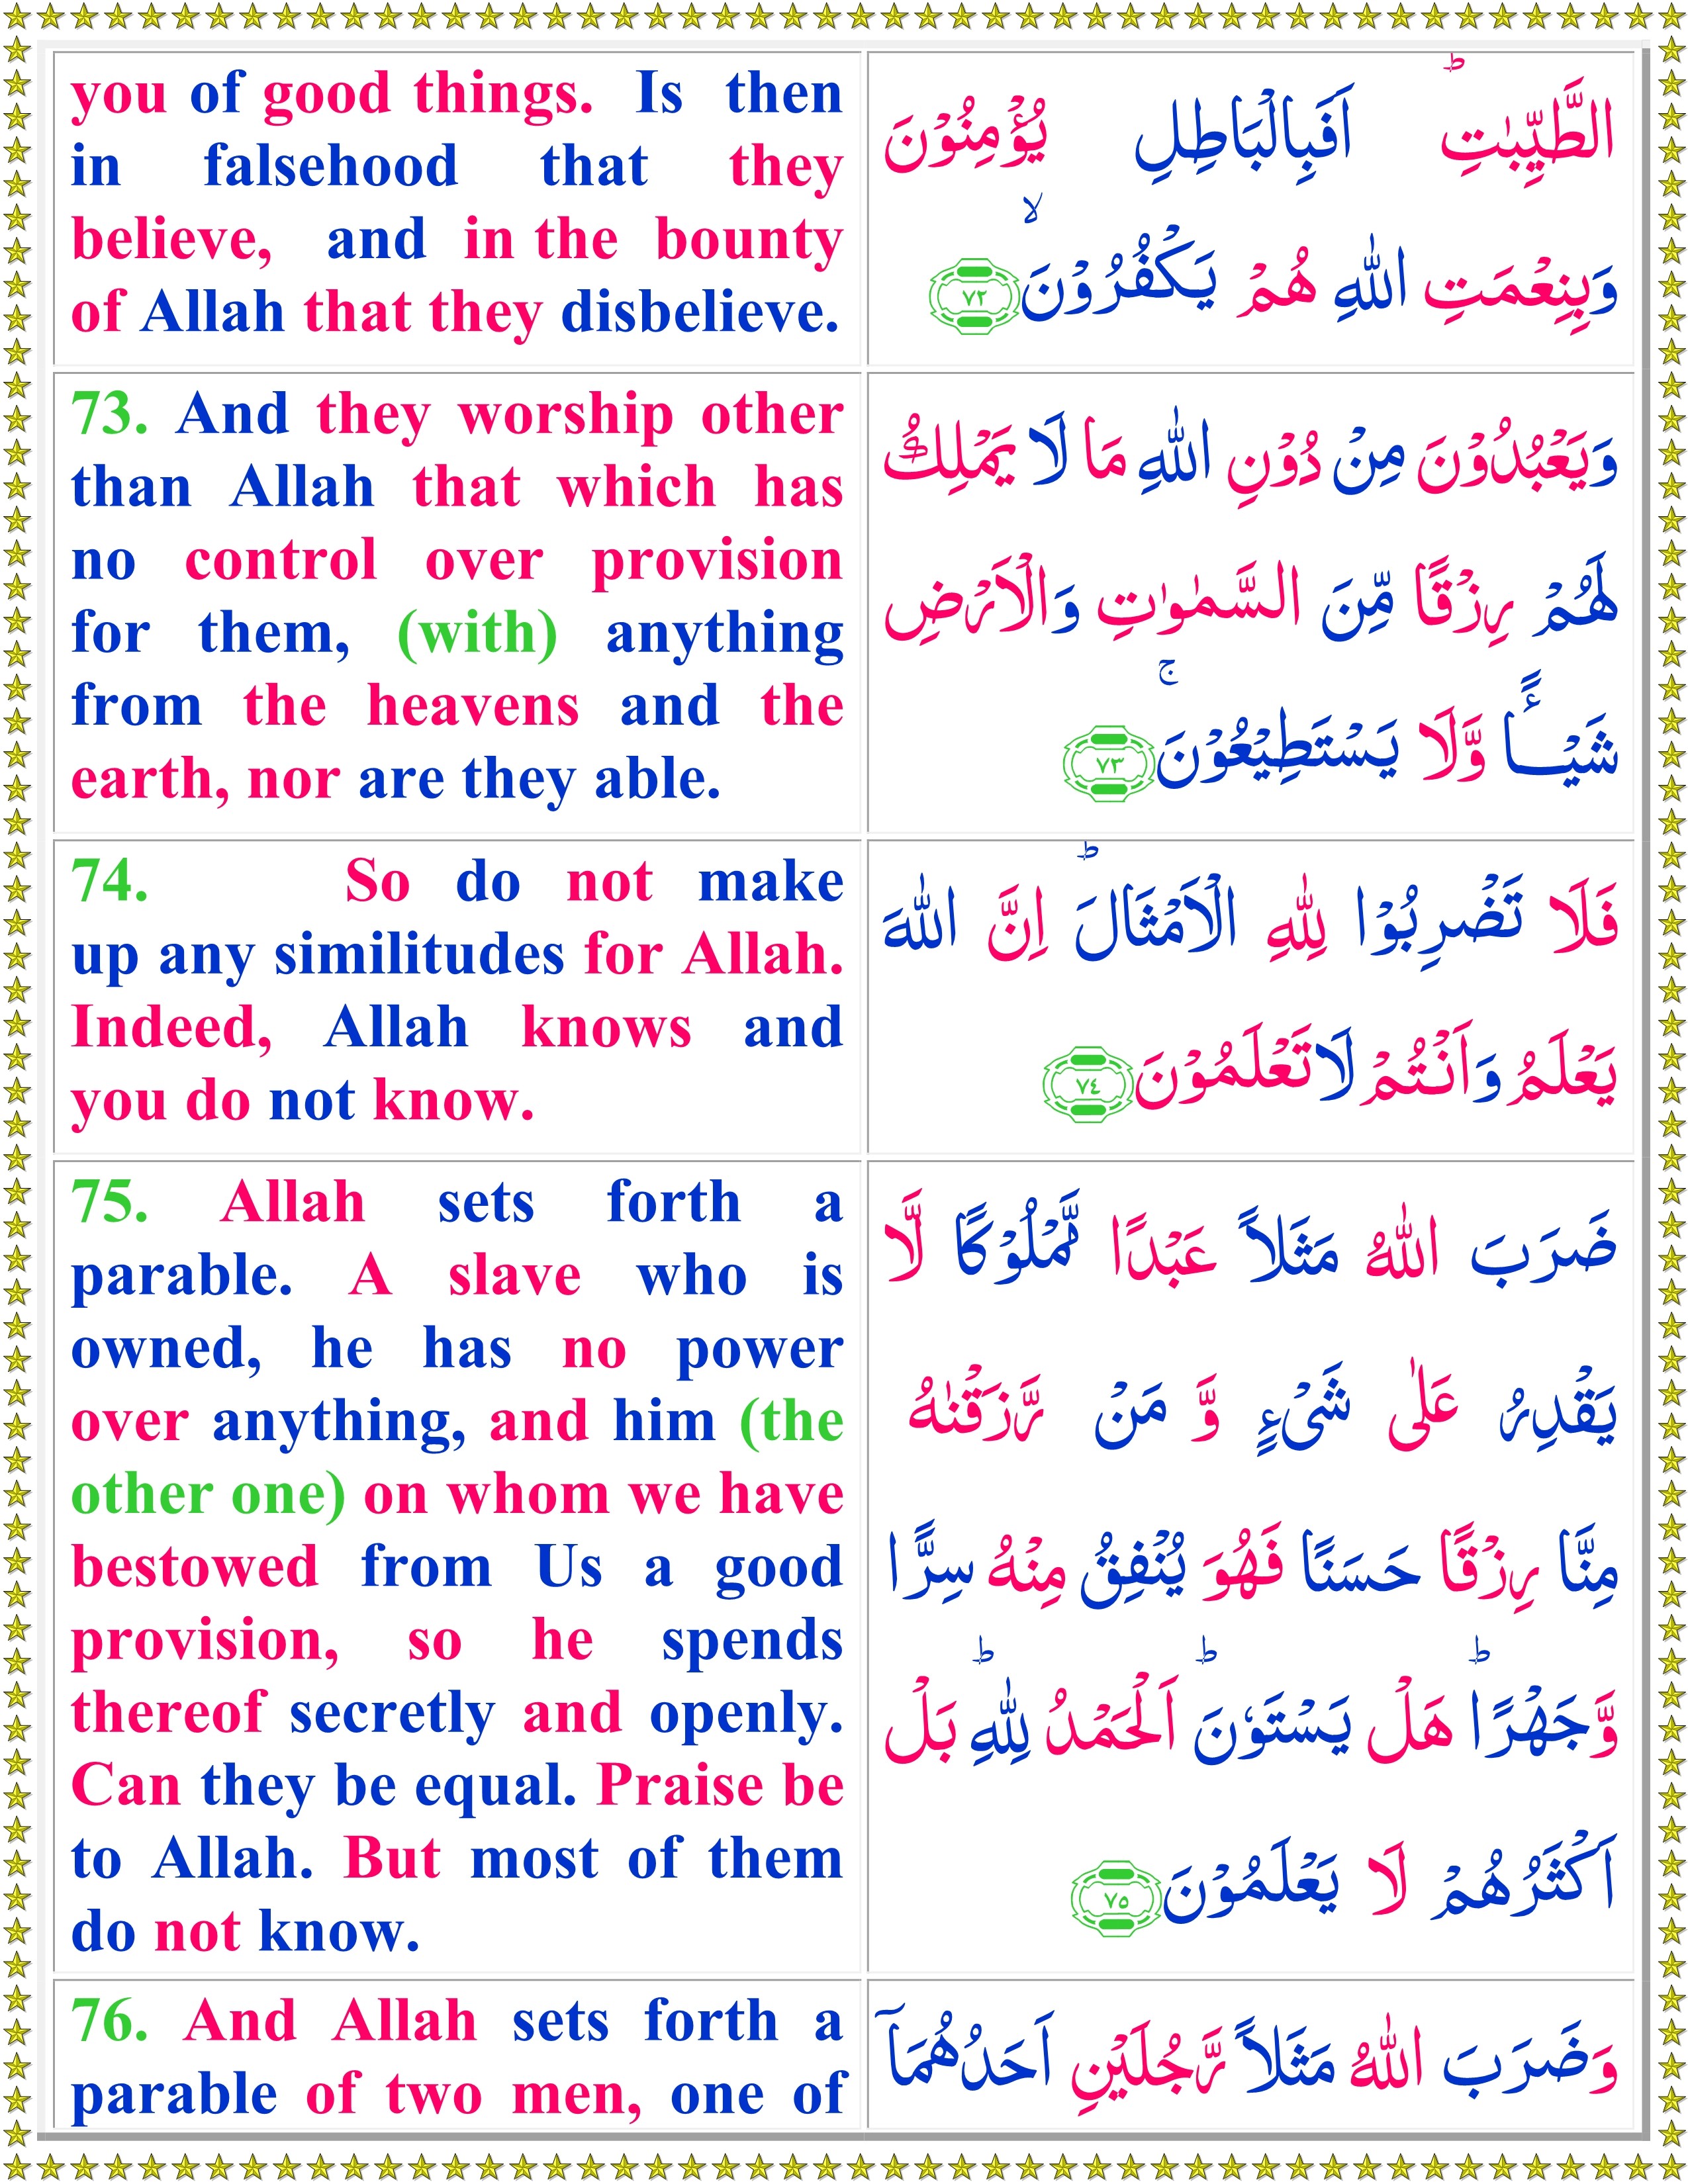 you of good things. Is then
in falsehood that they
believe, and in the bounty
of Allah that they disbelieve.
الطَّيِّبٰتِ ؕ اَفَبِالۡبَاطِلِ يُؤۡمِنُوۡنَ
وَبِنِعۡمَتِ اللّٰهِ هُمۡ يَكۡفُرُوۡنَ ۙ ﴿٧٢﴾
73. And they worship other
than Allah that which has
no control over provision
for them, (with) anything
from the heavens and the
earth, nor are they able.
وَيَعۡبُدُوۡنَ مِنۡ دُوۡنِ اللّٰهِ مَا لَا يَمۡلِكُ
لَهُمۡ رِزۡقًا مِّنَ السَّمٰوٰتِ وَالۡاَرۡضِ
شَيۡـــًٔا وَّلَا يَسۡتَطِيۡعُوۡنَ ۚ ﴿٧٣﴾
74. So do not make
up any similitudes for Allah.
Indeed, Allah knows and
you do not know.
فَلَا تَضۡرِبُوۡا لِلّٰهِ الۡاَمۡثَالَ ؕ اِنَّ اللّٰهَ
يَعۡلَمُ وَاَنۡـتُمۡ لَا تَعۡلَمُوۡنَ ﴿٧٤﴾
75. Allah sets forth a
parable. A slave who is
owned, he has no power
over anything, and him (the
other one) on whom we have
bestowed from Us a good
provision, so he spends
thereof secretly and openly.
Can they be equal. Praise be
to Allah. But most of them
do not know.
ضَرَبَ اللّٰهُ مَثَلًا عَبۡدًا مَّمۡلُوۡكًا لَّا
يَقۡدِرُ عَلٰى شَىۡءٍ وَّ مَنۡ رَّزَقۡنٰهُ
مِنَّا رِزۡقًا حَسَنًا فَهُوَ يُنۡفِقُ مِنۡهُ سِرًّا
وَّجَهۡرًا ؕ هَلۡ يَسۡتَوٗنَ ؕ اَلۡحَمۡدُ لِلّٰهِ ؕ بَلۡ
اَكۡثَرُهُمۡ لَا يَعۡلَمُوۡنَ ﴿٧٥﴾
76. And Allah sets forth a
parable of two men, one of
وَضَرَبَ اللّٰهُ مَثَلًا رَّجُلَيۡنِ اَحَدُهُمَاۤ